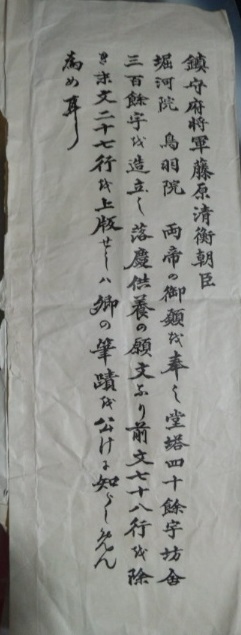 鎮守府将軍藤原清衡朝臣
堀河院 鳥羽院 両帝の御願を奉し堂塔四十餘宇坊舎
三百餘宇を造立し落慶供養の願文なり前文七十八行を除
き末文二十七行を上版せしハ卿の筆蹟を公けに知らしめん
為め耳